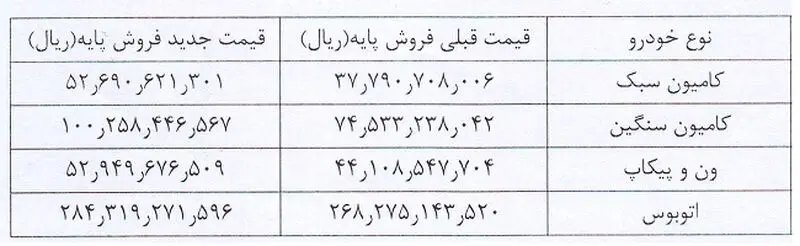 نوع خودرو قیمت قبلی فروش پایه(ریال) قیمت جدید فروش پایه(ریال)
کامیون سبک ۳۷٫۷۹۰٫۷۰۸٫۰۰۶ ۵۲٫۶۹۰٫۶۲۱٫۳۰۱
کامیون سنگین ۷۴٫۵۳۳٫۲۳۸٫۰۴۲ ۱۰۰٫۲۵۸٫۴۴۶٫۵۶۷
ون و پیکاپ ۴۴٫۱۰۸٫۵۴۷٫۷۰۴ ۵۲٫۹۴۹٫۶۷۶٫۵۰۹
اتوبوس ۲۶۸٫۲۷۵٫۱۴۳٫۵۲۰ ۲۸۴٫۳۱۹٫۲۷۱٫۵۹۶